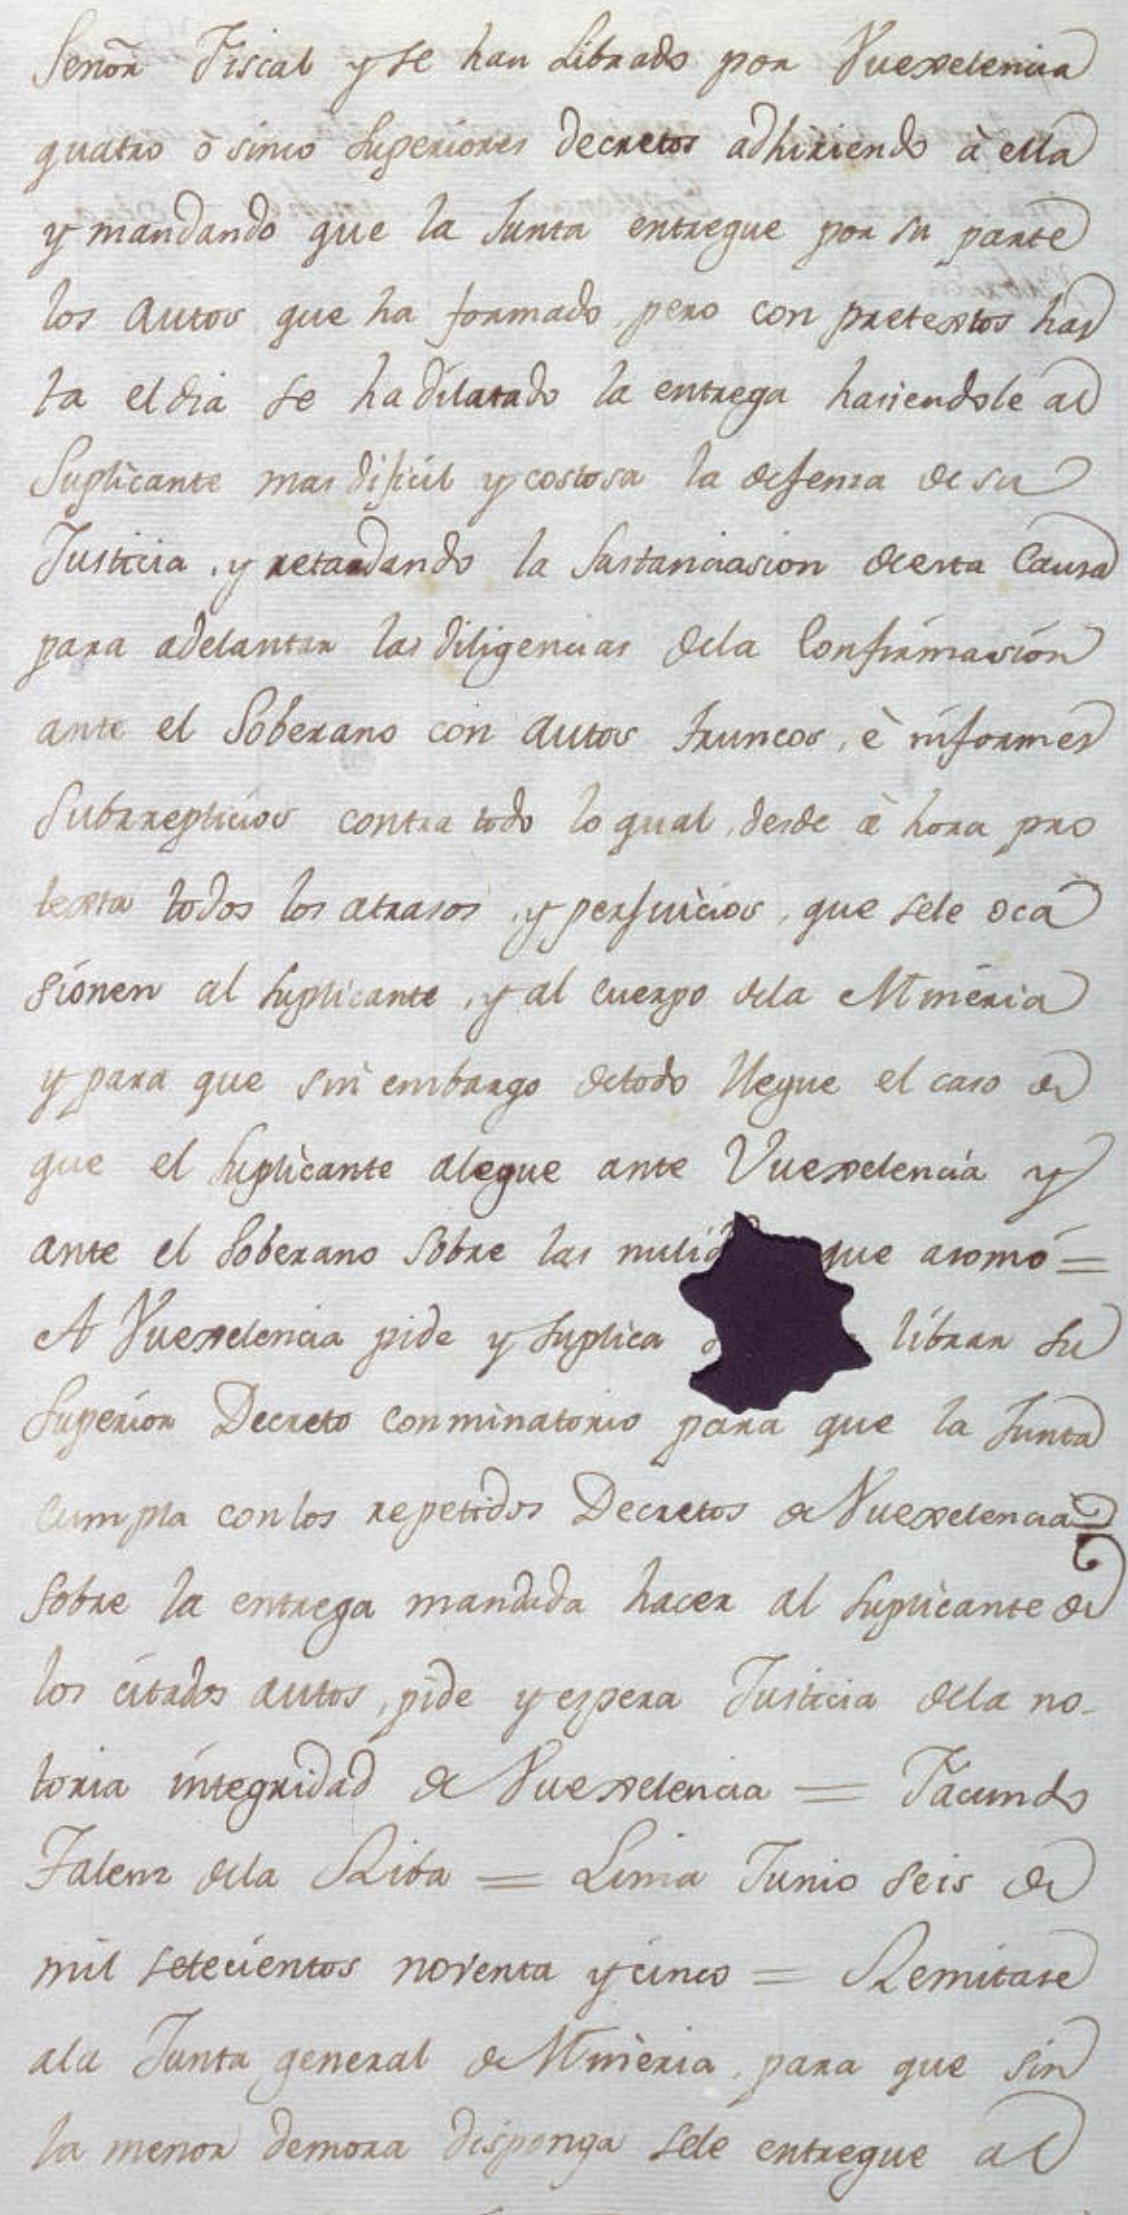 Señor Fiscal y se han Librado por Vuexelencia
quatro ò sinco Superiores decretos adhiriendo à ella
y mandando que la Junta entregue por su parte
los autos que ha formado, pero con pretextos has
ta el dia se ha dilatado la entrega hasiendole al
Suplicante mas dificil y costosa la defensa de su
Justicia, y retardando la Sustanciasion de esta Causa
para adelantar las diligencias dela Confirmasión
ante el Soberano con autos truncos, è informes
Subrrepticios contra todo lo qual, desde à hora pro
texta todos los atrasos, y perjuicios, que sele oca
sionen al Suplicante, y al cuerpo dela Mineria
y para que sin embargo detodo llegue el caso de
que el Suplicante alegue ante Vuexelencia y
ante el Soberano Sobre las nulid que asomó =
A Vuexelencia pide y Suplica librar su
Superior Decreto conminatorio para que la Junta
cumpla con los repetidos Decretos de Vuexelencia
Sobre la entrega mandada hacer al Suplicante de
los citados autos, pide y espera Justicia dela no-
toria integridad de Vuexelencia = Facundo
Falenz dela Riba = Lima Junio seis de
mil setecientos noventa y cinco = Remitase
ala Junta general de Mineria, para que sin
la menor demora disponga sele entregue al